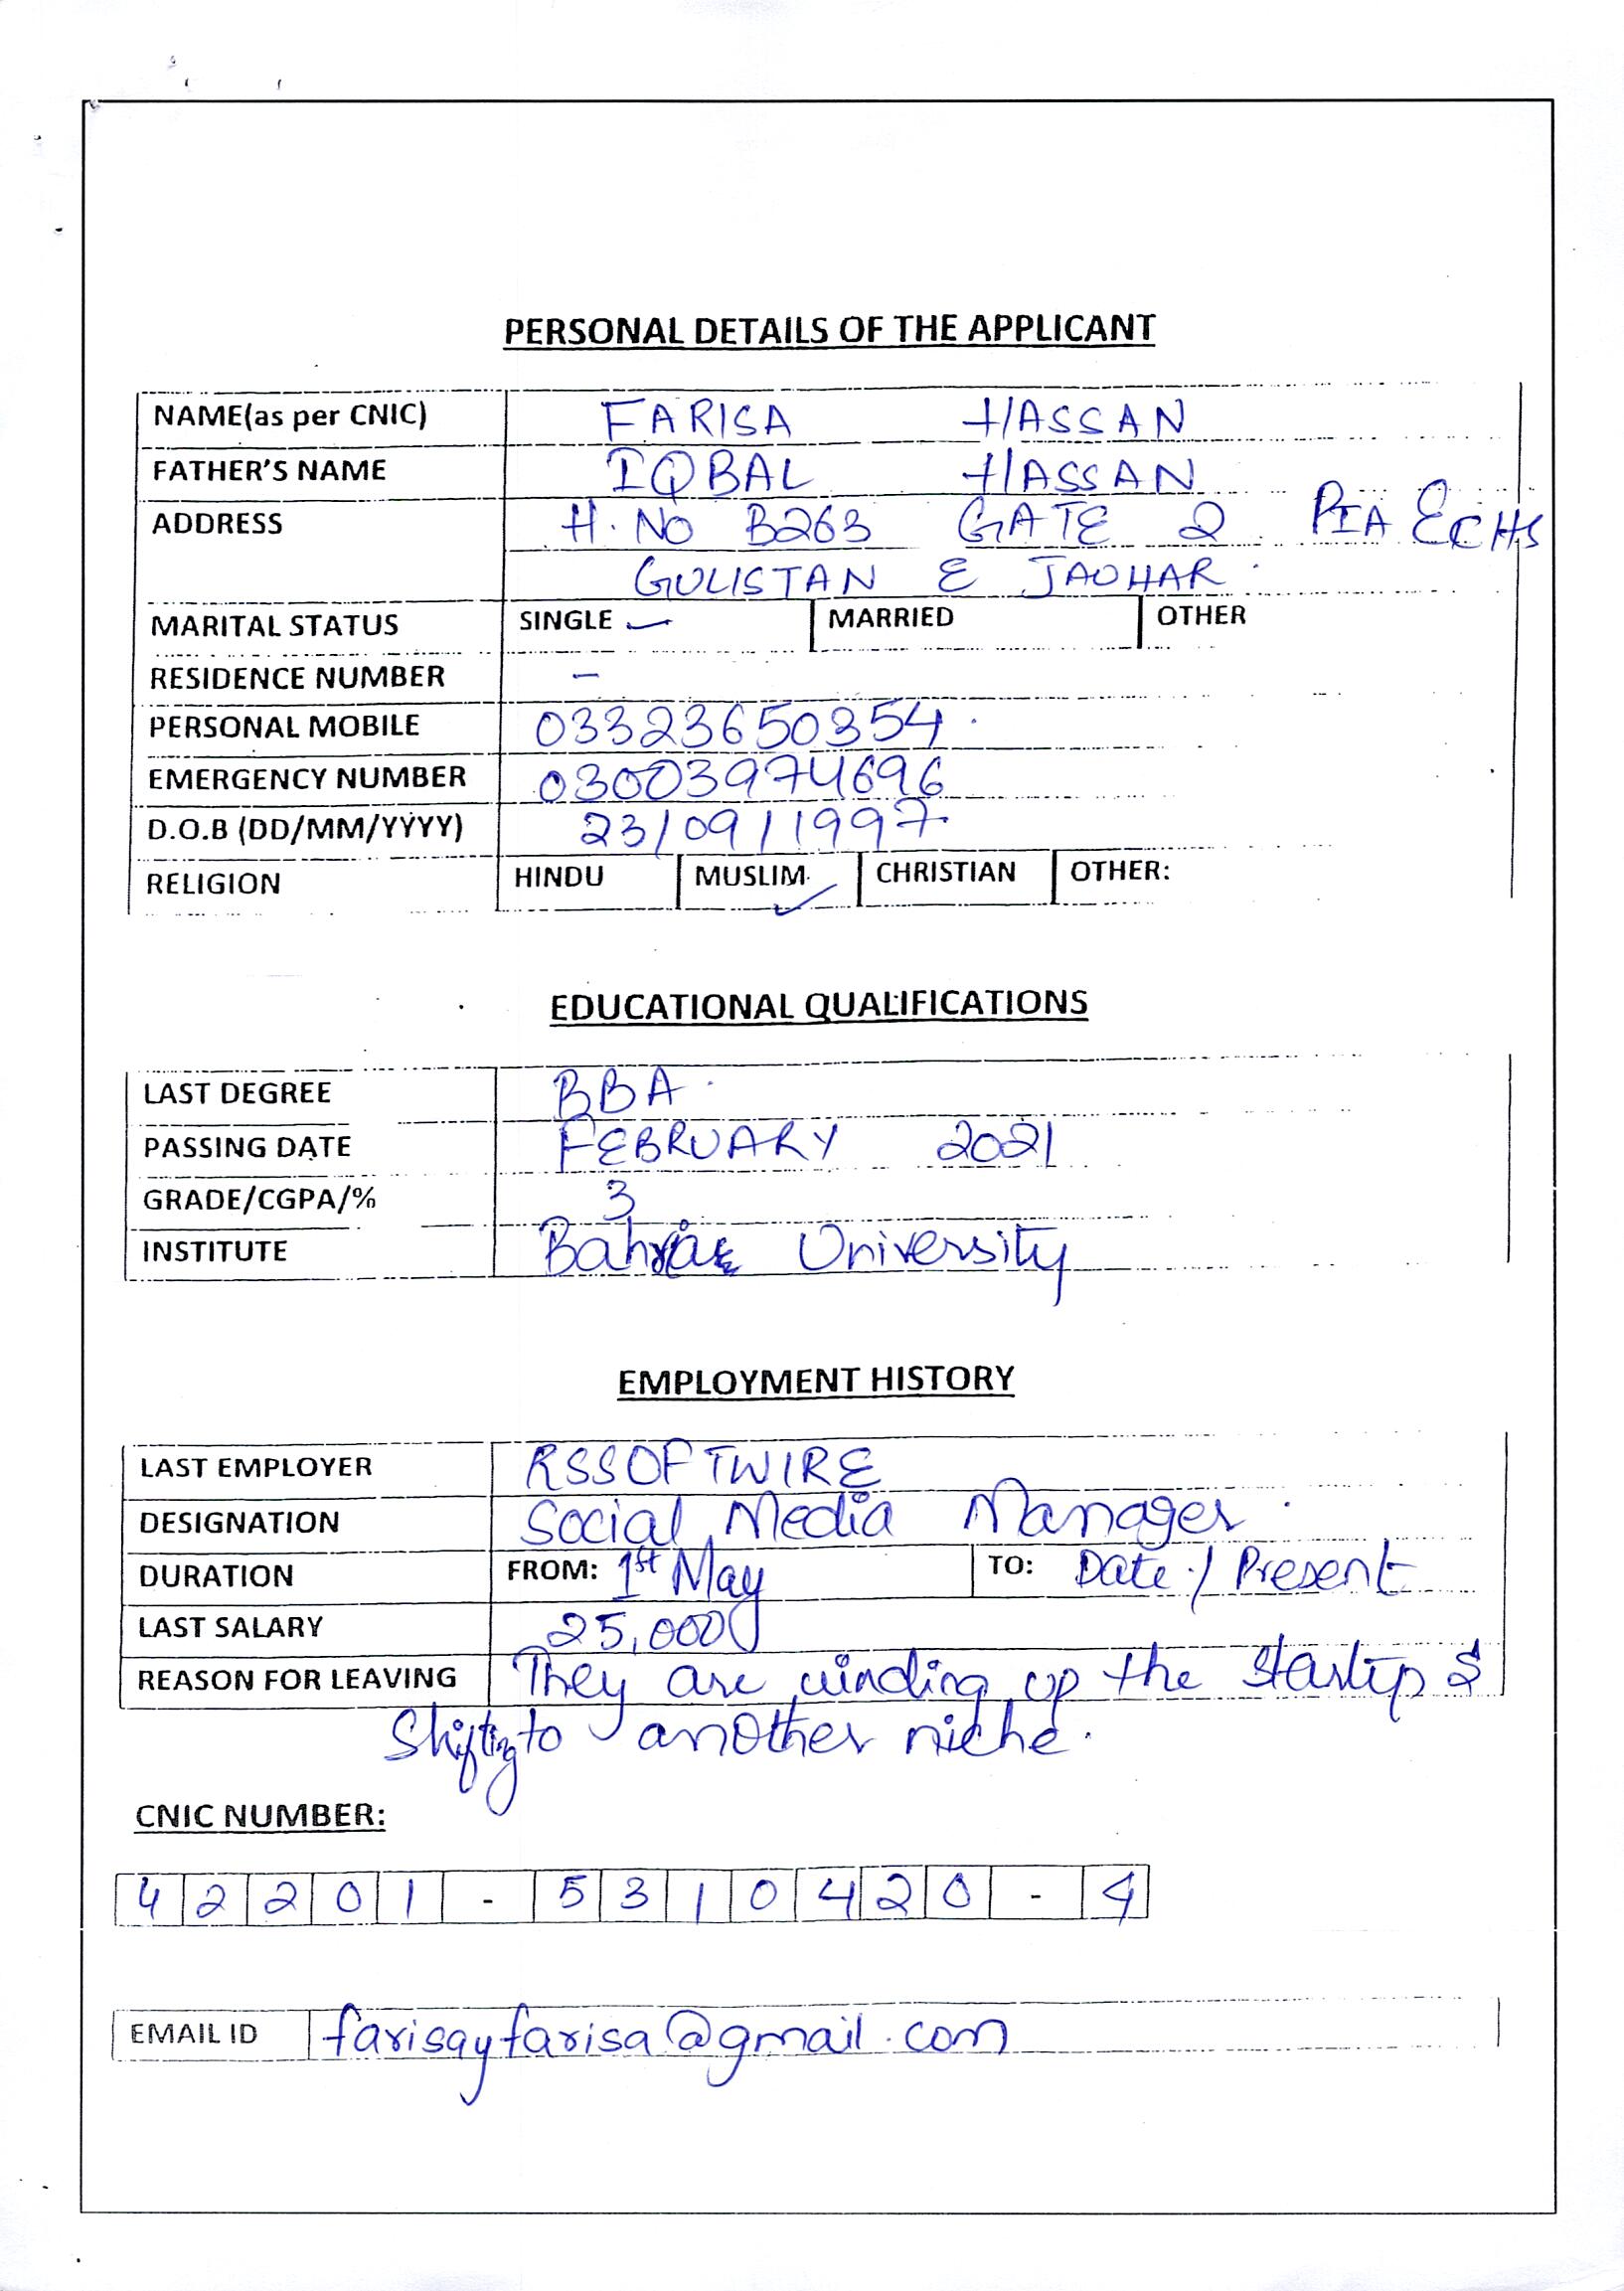 PERSONAL DETAILS OF THE APPLICANT
NAME(as per CNIC) FARISA HASSAN
FATHER'S NAME IQBAL HASSAN
ADDRESS H. NO B263 GATE 2 PIA ECHS
GULISTAN E JAOHAR.
MARITAL STATUS SINGLE MARRIED OTHER
RESIDENCE NUMBER -
PERSONAL MOBILE 03323650354.
EMERGENCY NUMBER 03003974696
D.O.B (DD/MM/YYYY) 23/09/1997
RELIGION HINDU MUSLIM ✓ CHRISTIAN OTHER:
EDUCATIONAL QUALIFICATIONS
LAST DEGREE BBA.
PASSING DATE FEBRUARY 2021
GRADE/CGPA/% 3
INSTITUTE University
EMPLOYMENT HISTORY
LAST EMPLOYER RSSOFTWIRE
DESIGNATION Social Media Manager.
DURATION FROM: 1st May TO: Date / Present
LAST SALARY 25,000
REASON FOR LEAVING They are winding up the startup &
Shifting to another niche.
CNIC NUMBER:
42201-5310420-4
EMAIL ID farisayfarisa@gmail.com